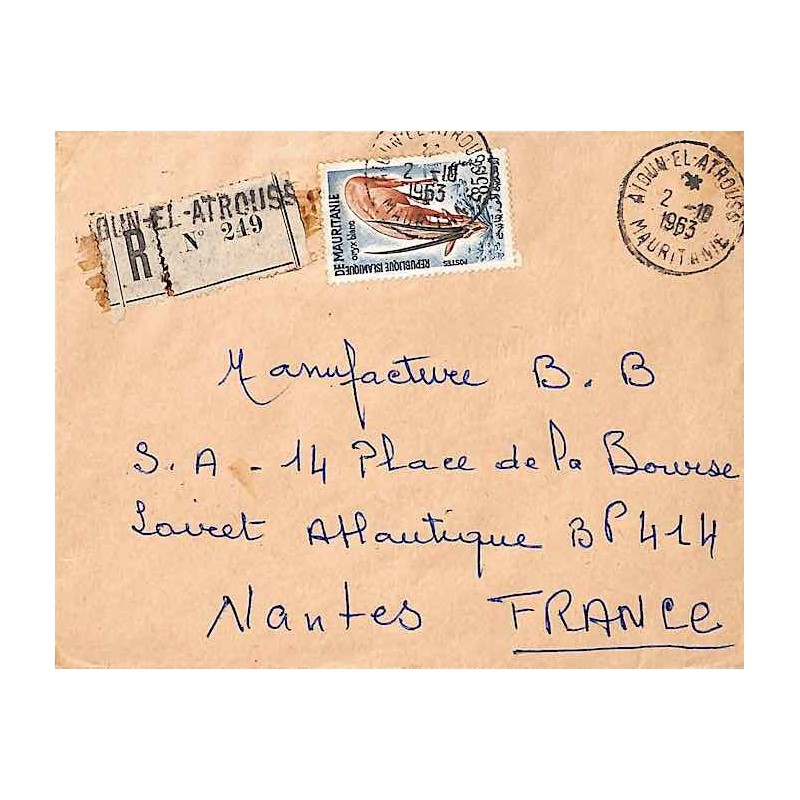 AIOUN-EL-ATROUSS
R N° 249
AIOUN-EL-ATROUSS
2 -10
1963
MAURITANIE
85F
POSTES
REPUBLIQUE ISLAMIQUE
DE MAURITANIE
oryx blanc
AIOUN-EL-ATROUSS
2 -10
1963
MAURITANIE
Manufacture B.B
S.A - 14 Place de la Bourse
Loiret Atlantique BP 414
Nantes FRANCE